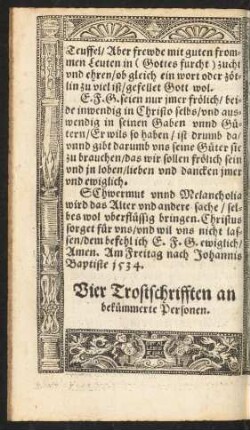 Teuffel/ Aber frewde mit guten from
men Leuten in (Gottes furcht) zucht
vnd ehren/ ob gleich ein wort oder zöt-
lin zu viel ist/ gefellet Gott wol.
E. F. G. seien nur jmer frölich/ bei-
de inwendig in Christo selbs/ vnd aus-
wendig in seinen Gaben vnnd Gü-
tern/ Er wils so haben/ ist drumb da/
vnnd gibt darumb vns seine Güter sie
zu brauchen/ das wir sollen frölich sein
vnd jn loben/ lieben vnd dancken jmer
vnd ewiglich.
SChwermut vnnd Melancholia
wird das Alter vnd andere sache/ sel-
bes wol vberflüssig bringen. Christus
sorget für vns/ vnd wil vns nicht las-
sen/ dem befehl ich E. F. G. ewiglich/
Amen. Am Freitag nach Johannis
Baptiste 1534.
Vier Trostschrifften an
bekümmerte Personen.